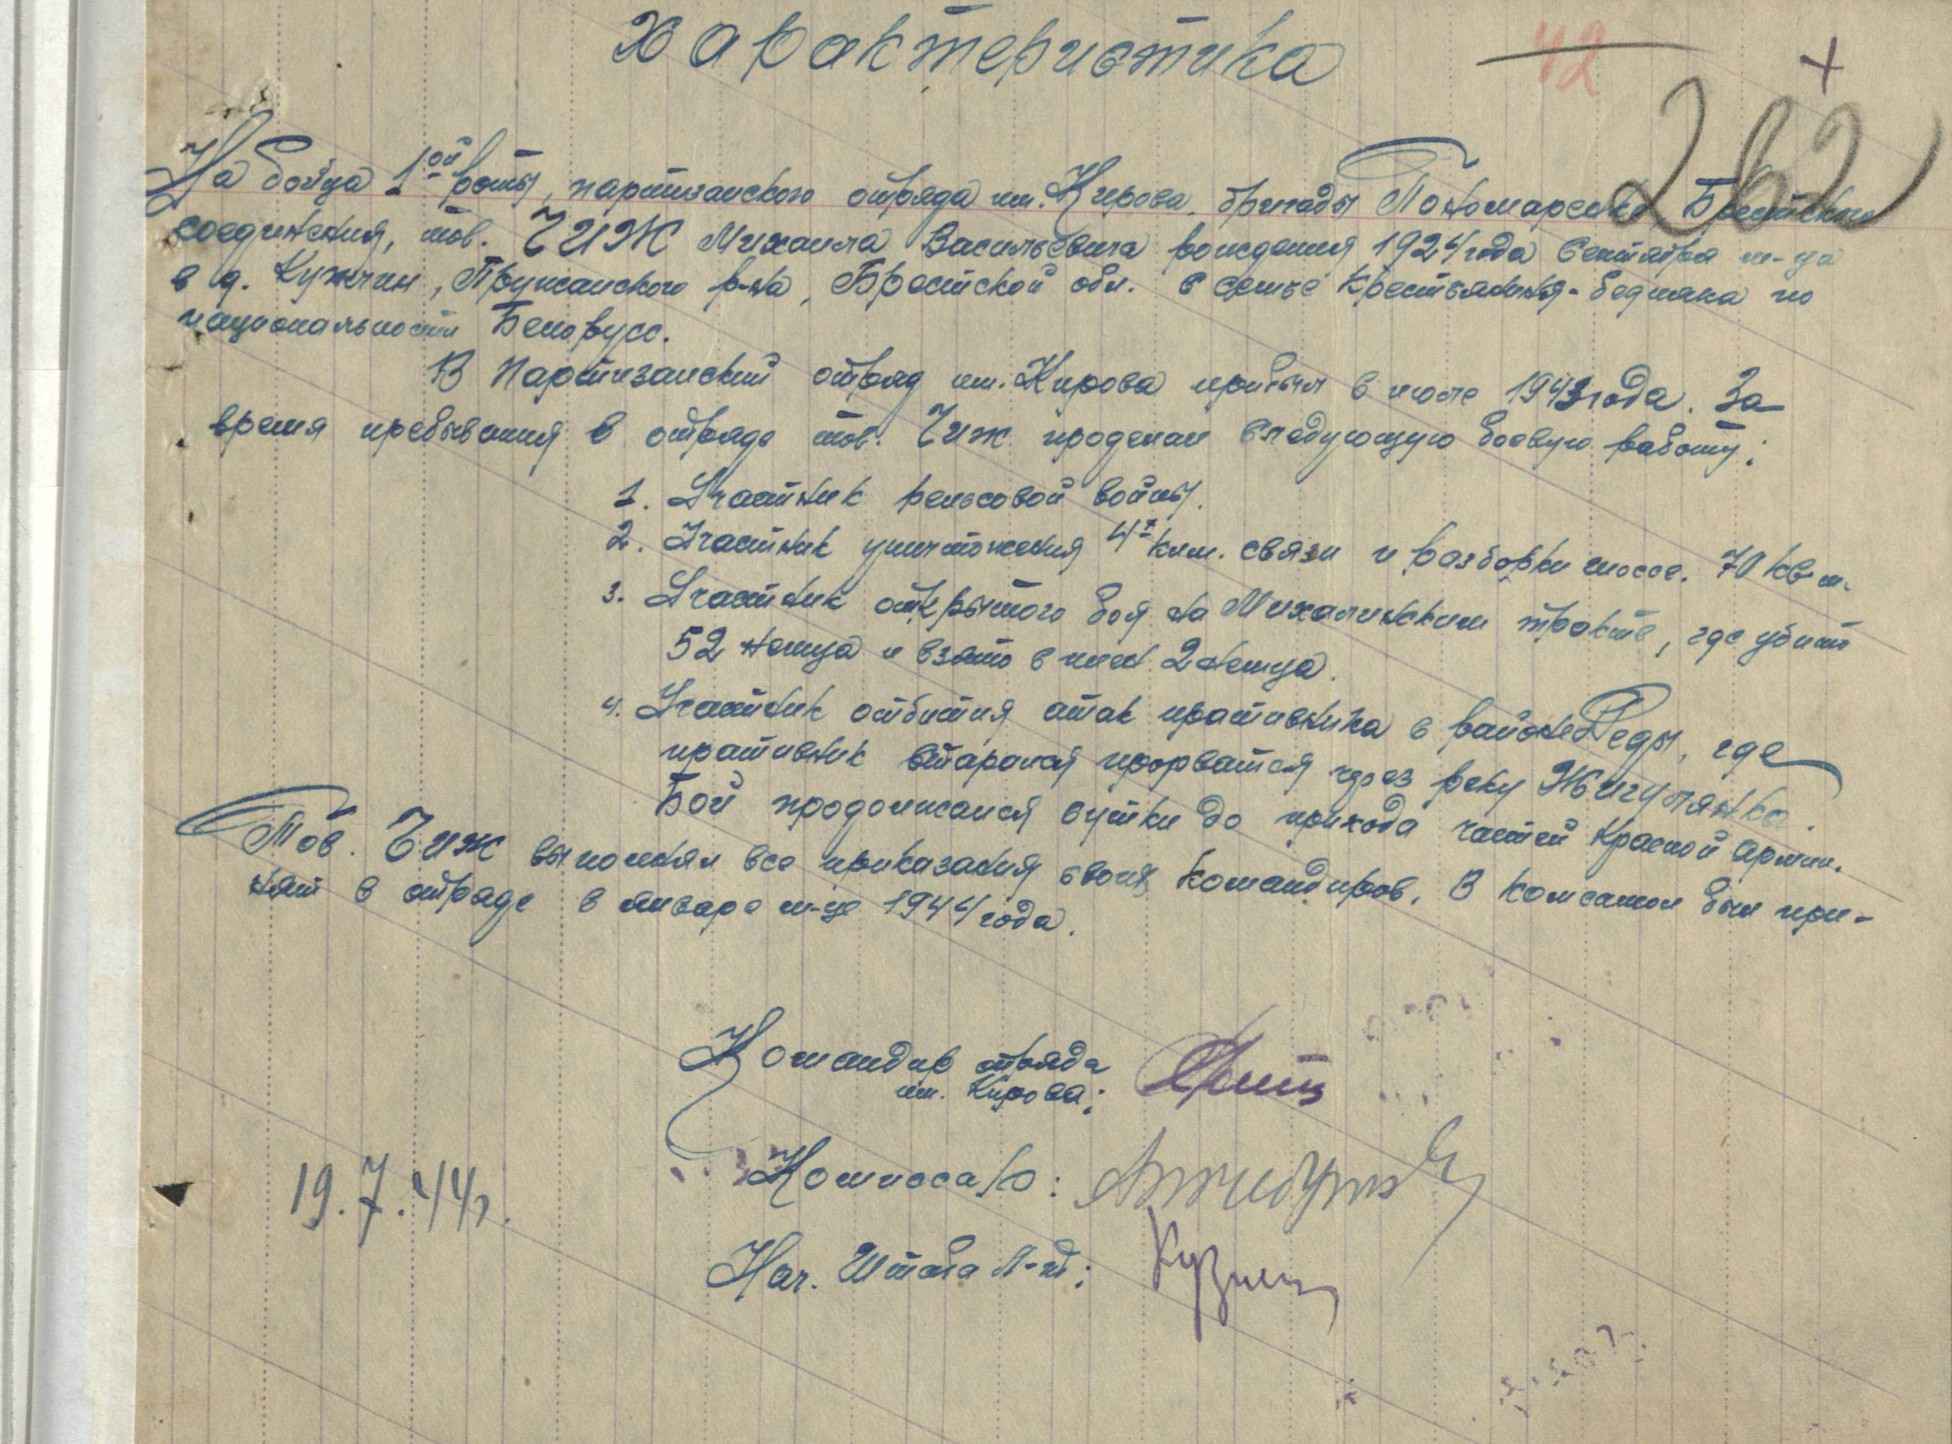 Характеристика
42
+
262
На бойца 1ой роты, партизанского отряда им. Кирова, бригады Пономаренко, Брестского
соединения, тов. ЧИЖ Михаила Васильевича рождения 1924 года сентября м-ца
в д. Кужчин, Пружанского р-на, Брестской обл. в семье крестьянина-бедняка по
национальности Белорусс.
В партизанский отряд им. Кирова прибыл в июле 1943 года. За
время пребывания в отряде тов. Чиж проделал следующую боевую работу:
1. Участник рельсовой войны.
2. Участник уничтожения 4х клм. связи и разборки шоссе. 70 кв м.
3. Участник открытого боя на Михалинском тракте, где убито
52 немца и взято в плен 2 немца.
4. Участник отбития атак противника в районе Реды, где
противник старался прорватся через реку Жигулянка.
Бой продолжался сутки до прихода частей Красной армии.
Тов. ЧИЖ выполнял все приказания своих командиров. В комсамол был при-
нят в отряде в январе м-це 1944 года.
Командир отряда
им. Кирова:
Комиссар:
19.7.44г.
Нач. Штаба П-О: Кузнец